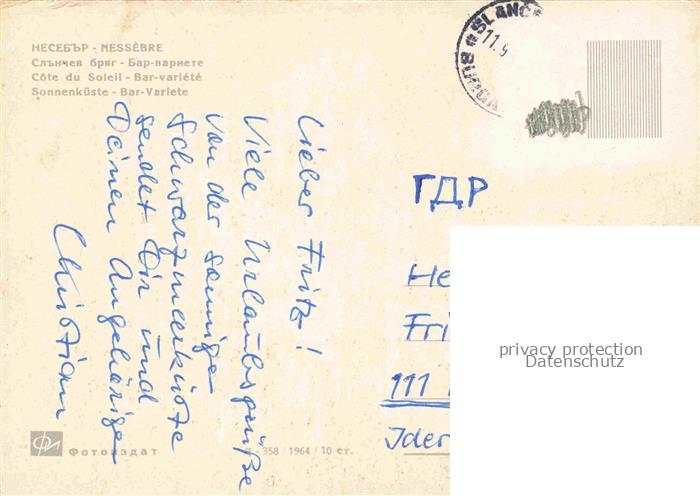 НЕСЕБЪР - NESSÈBRE
Слънчев бряг - Бар-вариете
Côte du Soleil - Bar-variété
Sonnenküste - Bar-Variete
Lieber Fritz!
Viele Urlaubsgrüße
von der sonnigen
Schwarzmeerküste
sendet Dir und
Deinen Angehörigen
Christian
SLANC
11.9
ГДР
He
Fri
111
Jder
privacy protection
Datenschutz
Фотоиздат
358 / 1964 / 10 ст.